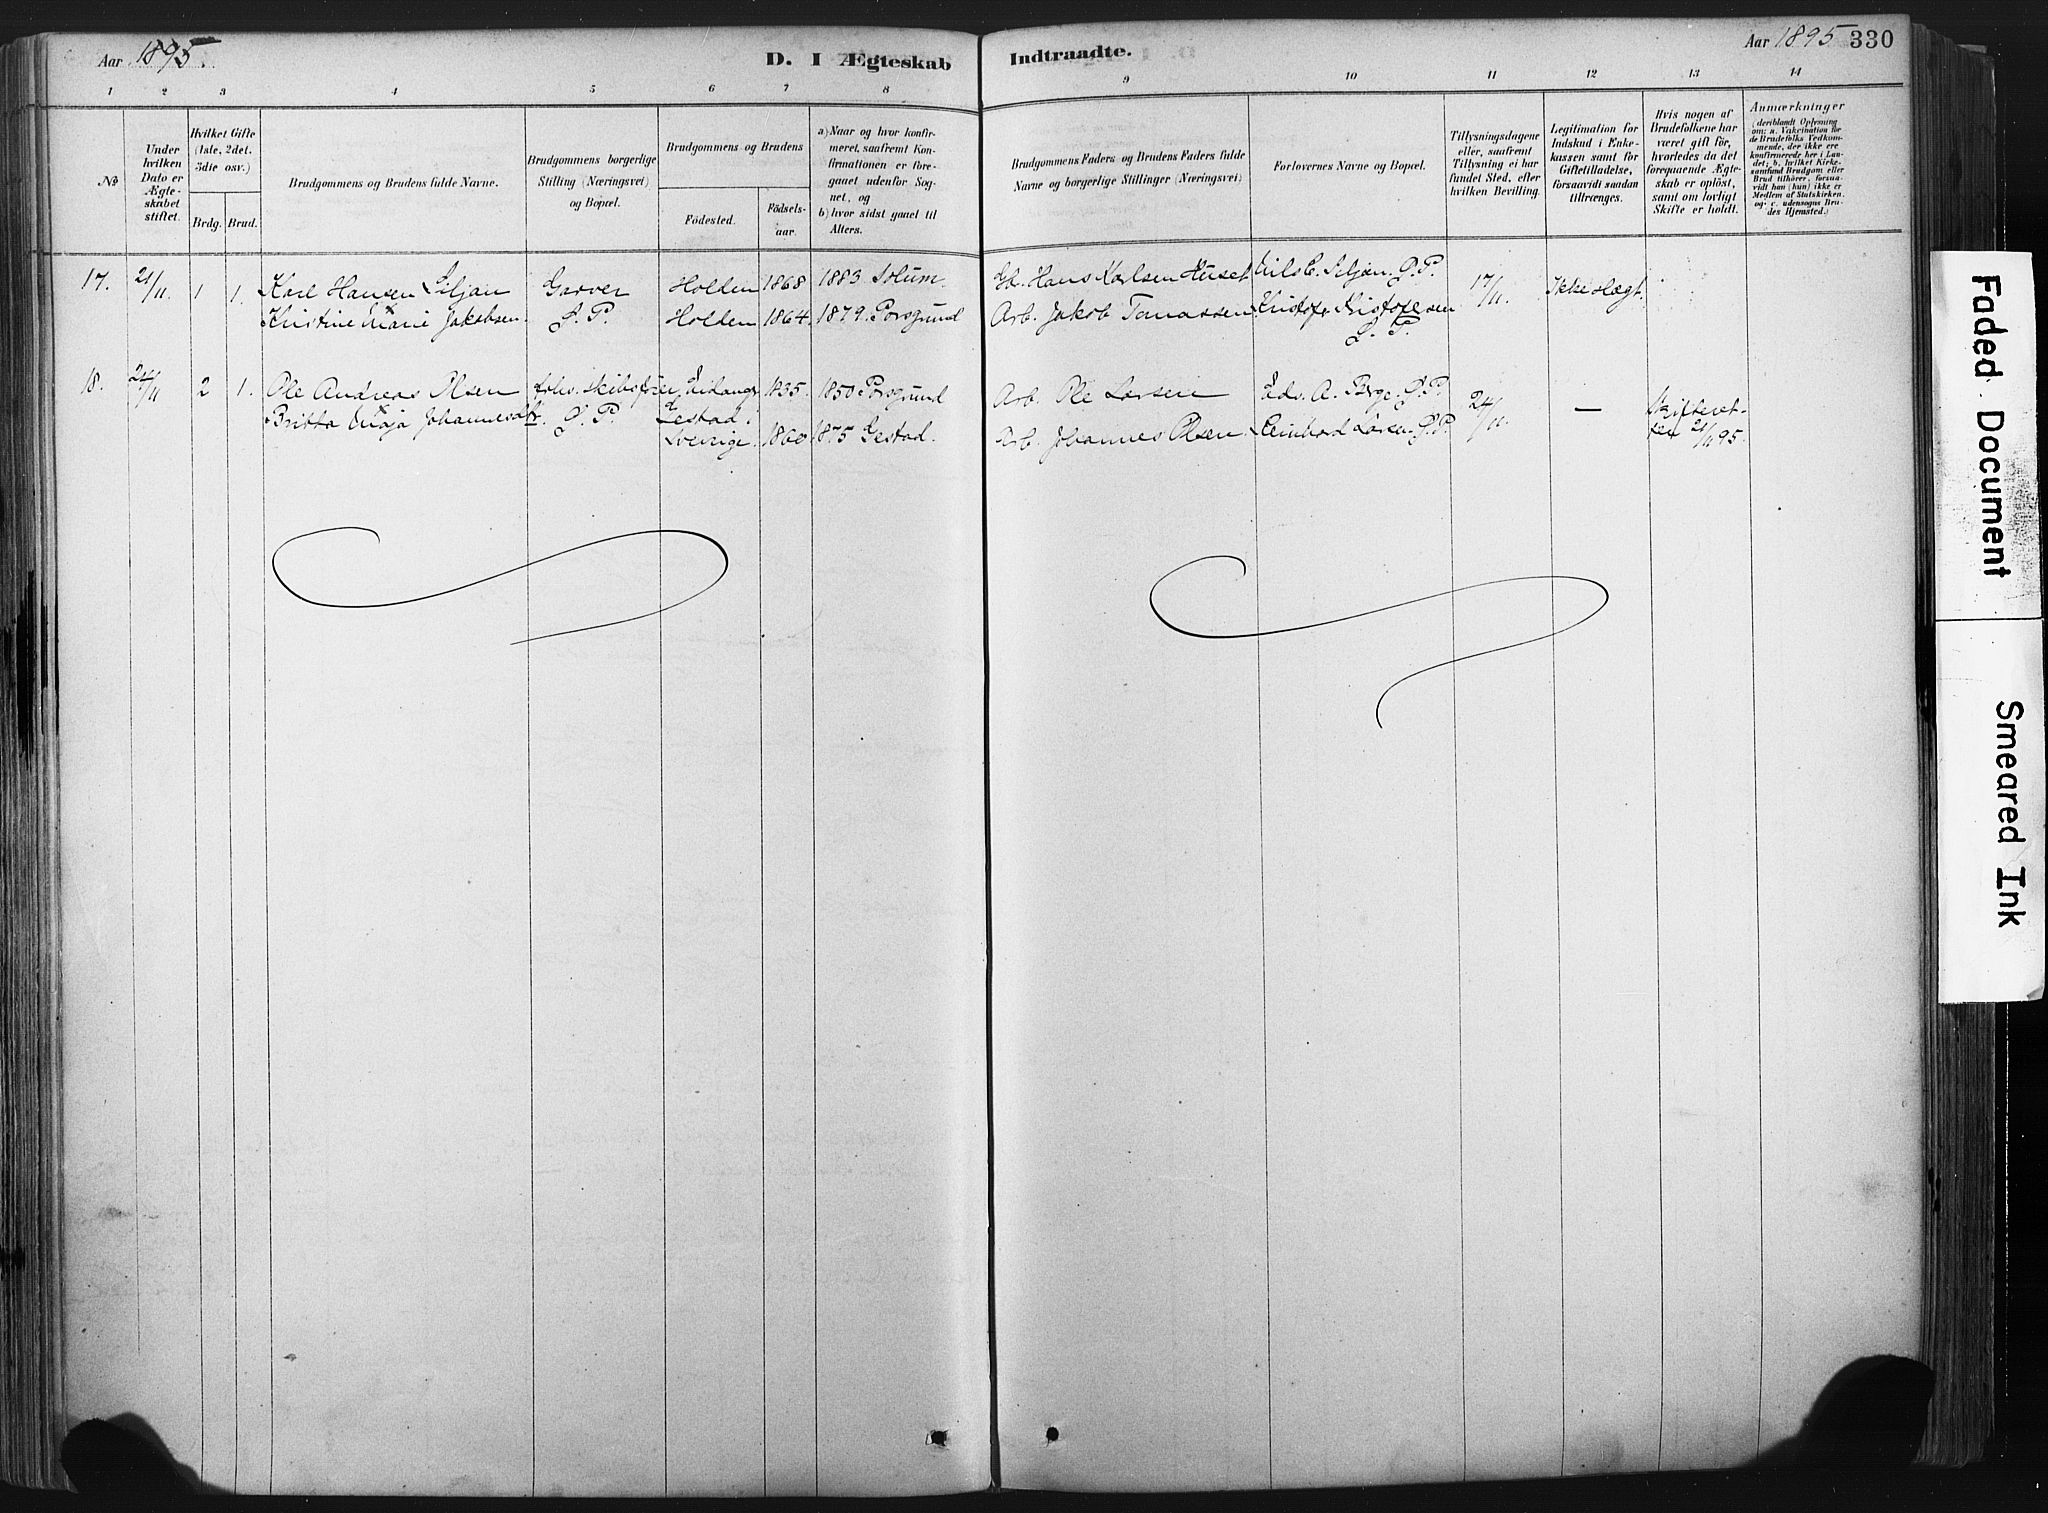 Aar 1895.
D. I Ægteskab
Indtraadte.
Aar 1895 330
1 2 3 4 5 6 7 8
9 10 11 12 13 14
No
Under hvilken Dato er Ægteskabet stiftet.
Hvilket Gifte (1ste, 2det, 3die osv.)
Brdg. Brud.
Brudgommens og Brudens fulde Navne.
Brudgommens borgerlige Stilling (Næringsvei) og Bopæl.
Brudgommens og Brudens
Fødested.
Fødselsaar.
a) Naar og hvor konfirmeret, saafremt Konfirmationen er foregaaet udenfor Sognet, og
b) hvor sidst gaaet til Alters.
Brudgommens Faders og Brudens Faders fulde Navne og borgerlige Stillinger (Næringsvei)
Forlovernes Navne og Bopæl.
Tillysningsdagene eller, saafremt Tillysning ei har fundet Sted, efter hvilken Bevilling.
Legitimation for Indskud i Enkekassen samt for Giftetilladelse, forsaavidt saadan tiltrænges.
Hvis nogen af Brudefolkene har været gift før, hvorledes da det foregaaende Ægteskab er opløst, samt om lovligt Skifte er holdt.
Anmærkninger (deriblandt Opførsel om: a. Vakcination for de Brudefolks Vedkommende, der ikke ere konfirmerede her i Landet; b. hvilket Kirkesamfund Brudgom eller Brud tilhører, forsaavidt han (hun) ikke er Medlem af Statskirken. og c. udensogns Brudes Hjemsted.)
17. 21/11 1 1. Karl Hansen Siljan Garver Holden 1868 1883 Solum. Gb. Hans Karlsen Huset Nils C. Siljan. P. P. 17/11. Ikke slægt.
Kristine Marie Jakobsen. S. P. Holden 1864. 1879. Porsgrund Arb. Jakob Tomassen. Kristofer Kristofersen
S. P.
18. 24/11 2 1. Ole Andreas Olsen Eidanger 1835. 1850 Porsgrund Arb. Ole Larsen Edv. A. Berge. P. P. 24/11. — Skifteret-
Britta Maja Johannesdtr. P. P. Gestad. Sverige. 1860. 1875 Gestad. Arb. Johannes Olsen. Reinhard Larsen. P. P. ten 21/11 95.
Faded Document
Smeared Ink